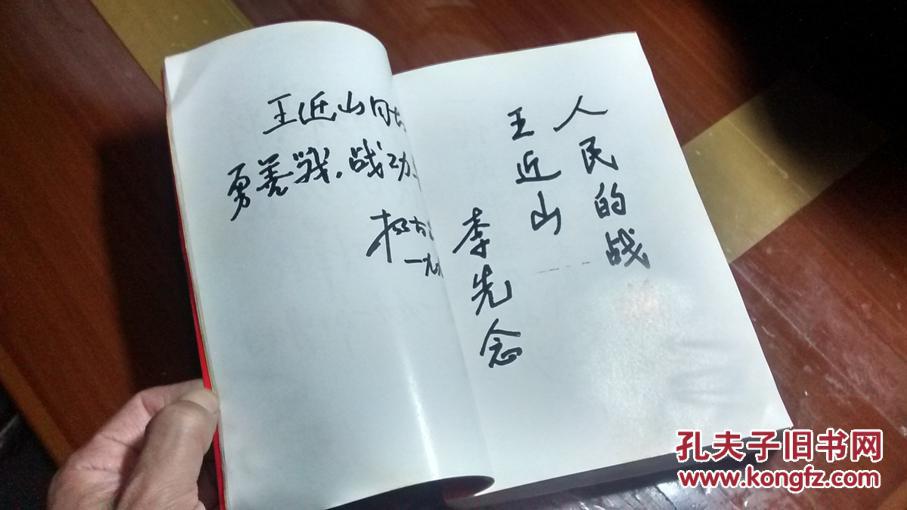 王近山同
勇善战,战功
一九
人民的战
王近山
李先念
孔夫子旧书网
www.kongfz.com